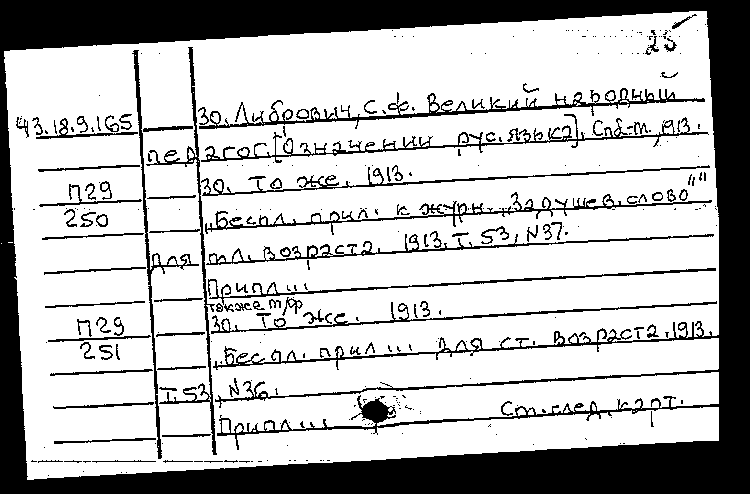 25
43.18.9.165 30. Либрович, С.Ф. Великий народный
педагог. [О значении рус. языка]. Спб-м., 1913.
П29 30. То же. 1913.
250 „Беспл. прил. к журн. „Задушев. слово""
для мл. возраста. 1913. Т. 53, N37.
Припл...
также т/ф
П29 30. То же. 1913.
251 „Беспл. прил... для ст. возраста. 1913.
Т. 53, N36.
Припл... См. след. карт.